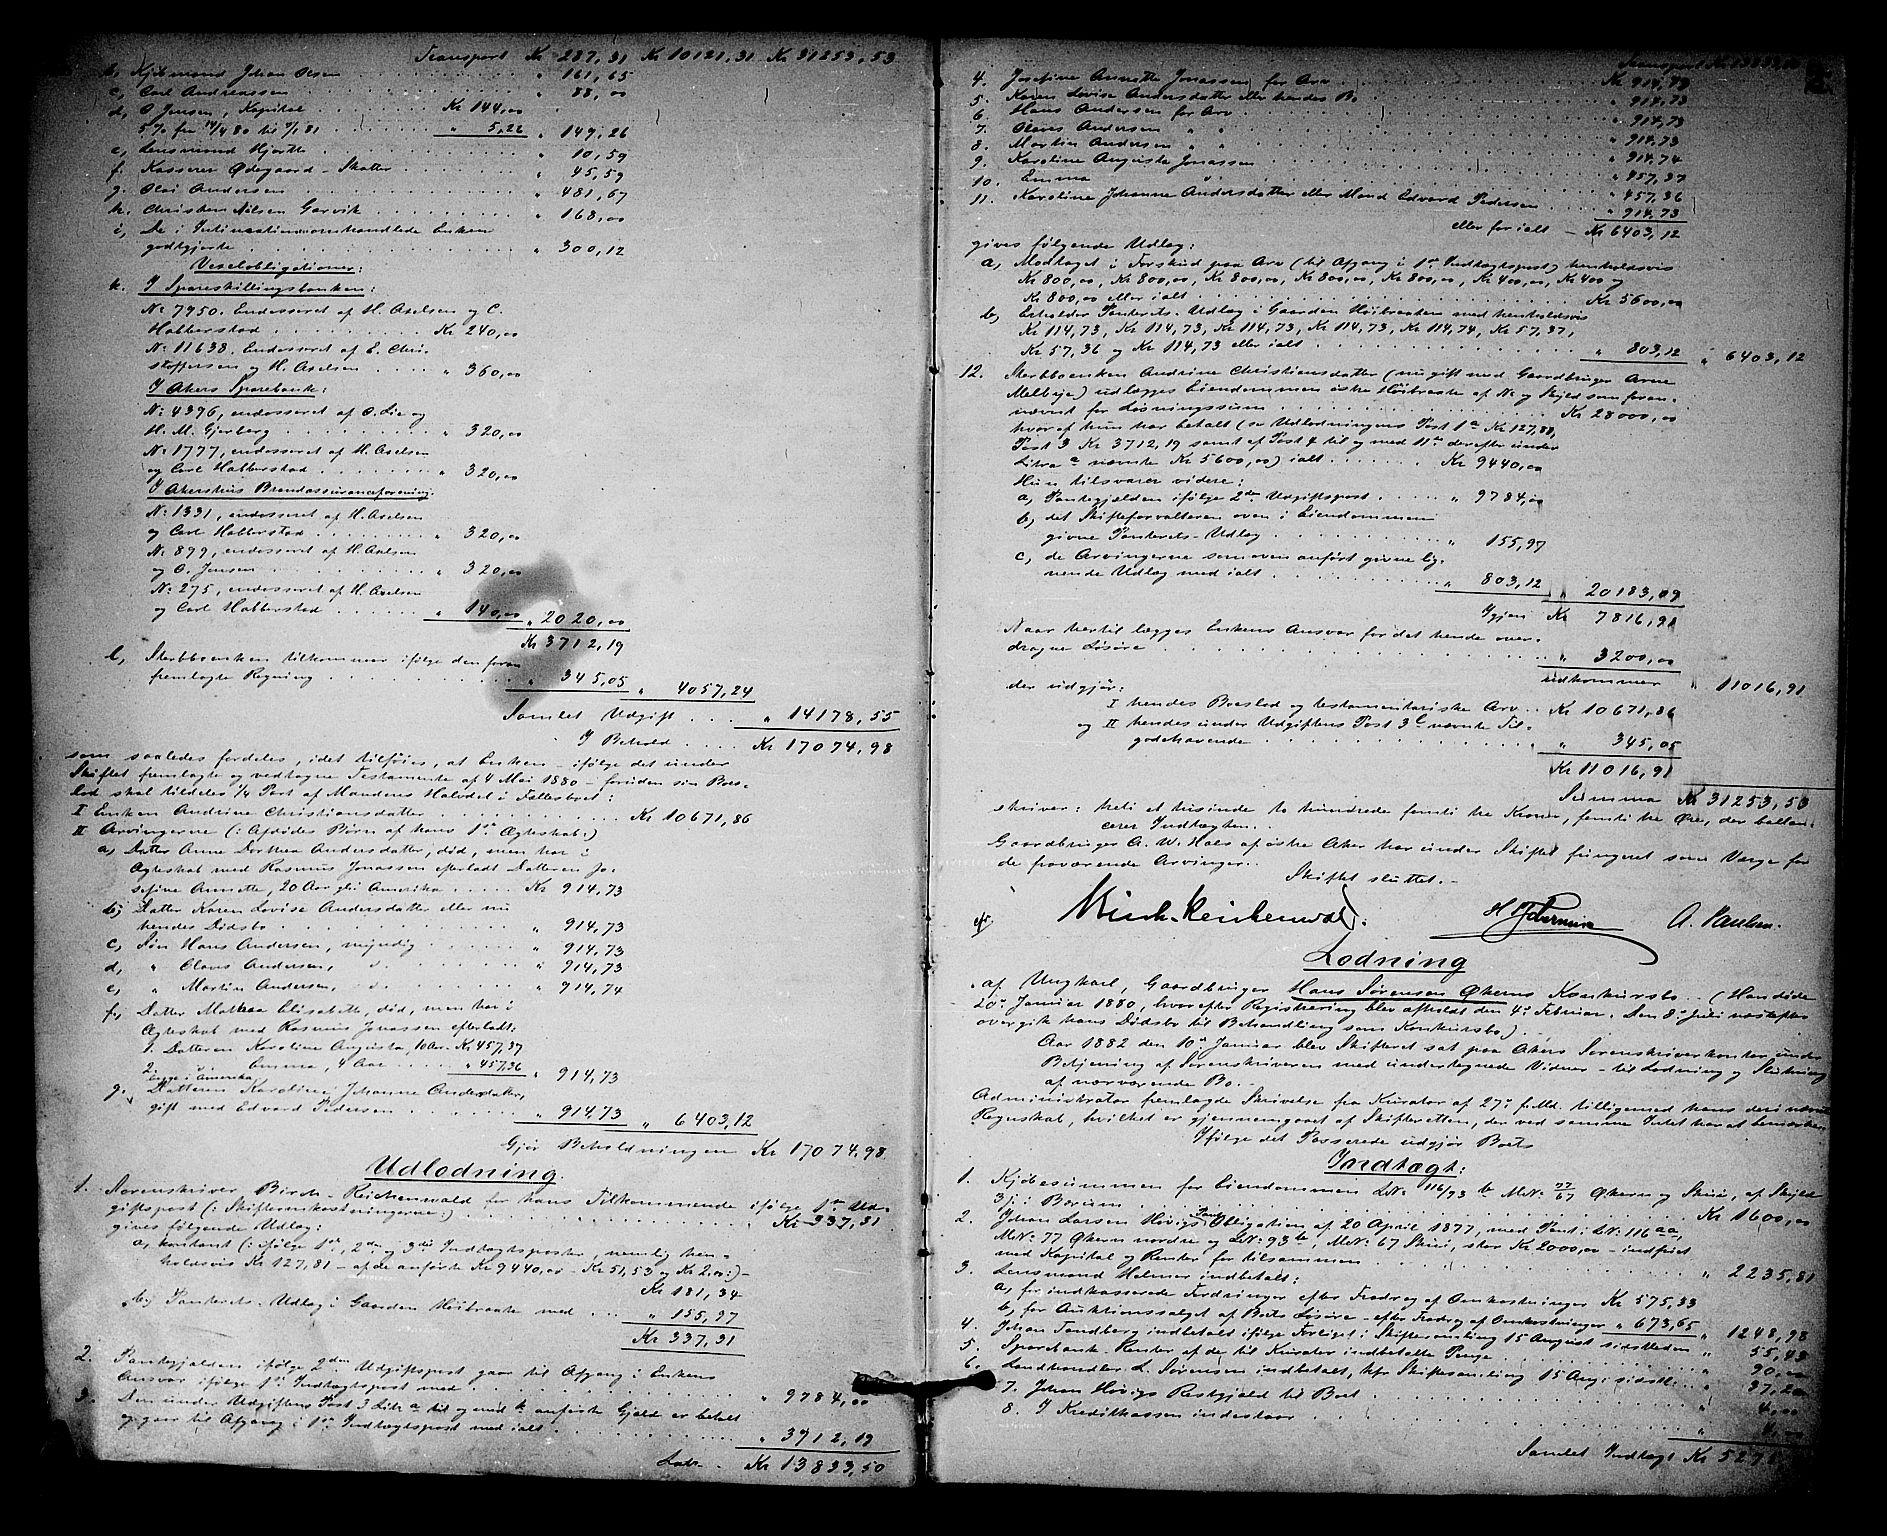 Transport Kr 237,31 Kr 10121,31 Kr 31253,53
b, Kjøbmand Johan Olsen " 161,65
c, Carl Andreassen " 88,00
d, O. Jensen, Kapital Kr 144,00
5 % fra 14/4 80 til 7/1 81 " 5,26 " 149,26
e, Lensmand Hjorth " 10,59
f. Kasserer Ødegaard - Skatter " 45,59
g. Olai Andersen " 481,67
h. Christen Nilsen Garvik " 168,00
i, De i Intimationen omhandlede Enken
godtgjorte " 300,12
Vexelobligationer:
k. I Spareskillingsbanken:
No 7950. Endosseret af H. Axelsen og C.
Habberstad Kr 240,00
No 11638. Endosseret af E. Chri-
stoffersen og H. Axelsen " 360,00
I Akers Sparebank:
No 4396, endosseret af O. Lie og
H. M. Gjerberg " 320,00
No 1777, endosseret af H. Axelsen
og Carl Habberstad " 320,00
I Akershus Brandassuranceforening.
No 1331, endosseret af H. Axelsen
og Carl Habberstad " 320,00
No 899, endosseret af H. Axelsen
og O. Jensen " 320,00
No 275, endosseret af H. Axelsen
og Carl Habberstad " 140,00 " 2020,00
Kr 3712,19
l, Sterbboenken tilkommer ifølge den foran
fremlagte Regning " 345,05 " 4057,24
Samlet Udgift " 14178,55
I Behold Kr 17074,98
som saaledes fordeles, idet tilføies, at Enken - ifølge det under
Skiftet fremlagte og vedtagne Testamente af 4 Mai 1880 - foruden sin Bos-
lod skal tildeles 1/4 Part af Mandens Halvdel i Fællesboet:
I Enken Andrine Christiansdatter Kr 10671,86
II Arvingerne (: Afdødes Børn af hans 1ste Ægteskab:)
a, Datter Anne Dorthea Andersdatter, død, men har i
Ægteskab med Rasmus Jonassen efterladt Datteren Jo-
sefine Annette, 20 Aar gl. i Amerika Kr 914,73
b, Datter Karen Lovise Andersdatter eller nu
hendes Dødsbo " 914,73
c, Søn Hans Andersen, myndig " 914,73
d, " Olaves Andersen, d. " 914,73
e, " Martin Andersen, d. " 914,74
f, Datter Mathea Elisabeth, død, men har i
Ægteskab med Rasmus Jonassen efterladt:
1. Datteren Karoline Augusta, 10 Aar Kr 457,37
2. " Emma, 4 Aar " 457,36 " 914,73
begge i Amerika
g. Datteren Karoline Johanne Andersdatter,
gift med Edvard Pedersen " 914,73 " 6403,12
Gjør Beholdningen Kr 17074,98
Udlodning.
1. Sorenskriver Birch-Reichenwald for hans Tilkommende ifølge 1ste Ud-
giftspost (: Skifteomkostningerne:) Kr 337,31
gives følgende Udlæg:
a, kontant (: ifølge 1ste, 2den og 3die Indtægtsposter, nemlig hen-
holdsvis Kr 127,81 - af de anførte Kr 9440,00 - Kr 51,53 og Kr 2,00:)-
Kr 181,34
b, Panterets-Udlæg i Gaarden Høibraaten med " 155,97
Kr 337,31
2. Pantegjælden ifølge 2den Udgiftspost gaar til Afgang i Enkens
Ansvar ifølge 1ste Indtægtspost med " 9784,00
3. Den under Udgiftens Post 3 Litr a til og med k anførte Gjæld er betalt
og gaar til Afgang i 1ste Indtægtspost med ialt " 3712,19
Lat. Kr 13833,50
Transport Kr 13833,50
4. Josefine Annette Jonassen for Arv Kr 914,73
5. Karen Lovise Andersdatter eller hendes Bo " 914,73
6. Hans Andersen for Arv " 914,73
7. Olaves Andersen " " " 914,73
8. Martin Andersen " " " 914,74
9. Karoline Augusta Jonassen " 457,37
10. Emma " " 457,36
11. Karoline Johanne Andersdatter eller Mand Edvard Pedersen " 914,73
eller for ialt - Kr 6403,12
gives følgende Udlæg:
a, Modtaget i Forskud paa Arv (til Afgang i 1ste Indtægtspost) henholdsvis
Kr 800,00, Kr 800,00, Kr 800,00, Kr 800,00, Kr 800,00, Kr 400,00, Kr 400 og
Kr 800,00 eller ialt Kr 5600,00
b, Erholder Panterets-Udlæg i Gaarden Høibraaten med henholdsvis
Kr 114,73, Kr 114,73, Kr 114,73, Kr 114,73, Kr 114,74, Kr 57,37,
Kr 57,36 og Kr 114,73 eller ialt " 803,12 " 6403,12
12. Sterbboenken Andrine Christiansdatter (nu gift med Gaardbruger Arne
Melbye) udlægges Eiendommen østre Høibraate af No og Skyld som foran
nævnt for Løsningssum Kr 28000,00
hvoraf hun har betalt (se Udlodningens Post 1a Kr 127,81,
Post 3 Kr 3712,19 samt af Post 4 til og med 11te derefter under
Litra a nævnte Kr 5600,00) ialt Kr 9440,00
Hun tilsvarer videre:
a, Pantegjælden ifølge 2den Udgiftspost " 9784,00
b, det Skifteforvalteren oven i Eiendommen
givne Panterets-Udlæg " 155,97
c, de Arvingerne som oven anført givne lig-
nende Udlæg med ialt " 803,12 " 20183,09
Igjen Kr 7816,91
Naar hertil lægges Enkens Ansvar for det hende over-
dragne Løsøre " 3200,00
udkommer " 11016,91
der udgjør:
I hendes Boeslod og testamentariske Arv Kr 10671,86
og II hendes under Udgiftens Post 3 l nævnte Til-
godehavende " 345,05
Kr 11016,91
Summa Kr 31253,53
skriver: treti et tusinde to hundrede femti tre Kroner, femti tre Øre, der ballan-
cerer Indtægten.
Gaardbruger A. W. Hals af østre Aker har under Skiftet fungeret som Værge for
de fraværende Arvinger.
Skiftet sluttet.-
Birch-Reichenwald. A. Paulsen.
Lodning
af Ungkarl, Gaardbruger Hans Sørensen Økerns Konkursbo. - (Han døde
20de Januar 1880, hvorefter Registrering blev afholdt den 4de Februar. Den 8de Juli næstefter
overgik hans Dødsbo til Behandling som Konkursbo).
Aar 1882 den 10de Januar blev Skifteret sat paa Akers Sorenskriverkontor under
Betjening af Sorenskriveren med undertegnede Vidner - til Lodning og Slutning
af nærværende Bo.-
Administrator fremlagde Skrivelse fra Kurator af 27de f. Md. tilligemed hans deri nævnte
Regnskab, hvilket er gjennemgaaet af Skifteretten, der ved samme Intet har at bemærke.
Ifølge det Passerede udgjør Boets
Indtægt:
1. Kjøbesummen for Eiendommen LNo 116/93 b MNo 77/67 Økern og Skui, af Skyld
3 ß i Bærum Kr 1600,00
2. Johan Larsen Høvigs Pant Obligation af 20 April 1877, med Pant i LNo 116 aa,
MNo 77 Økern nordre og LNo 93 b, MNo 67 Skui, stor Kr 2000,00 - indfriet
med Kapital og Renter for tilsammen " 2235,81
3. Lensmand Helmer indbetalt:
a, for indkasserede Fordringer efter Fradrag af Omkostninger Kr 575,33
b, for Auktionssalget af Boets Løsøre - efter Fradrag af Omkostninger " 673,65 " 1248,98
4. Johan Tandberg indbetalt ifølge Forliget i Skiftesamling 15 August sidstleden " 55,43
5. Sparebank-Renter af de til Kurator indbetalte Penge " 90,00
6. Landhandler L. Sørensen indbetalt, kfr. Skiftesamling 15 Aug. sidstl. " 37,20
7. Johan Høvigs Restgjæld til Boet " 4,00
8. I Kreditkassen indestaar "
Samlet Indtægt Kr 527